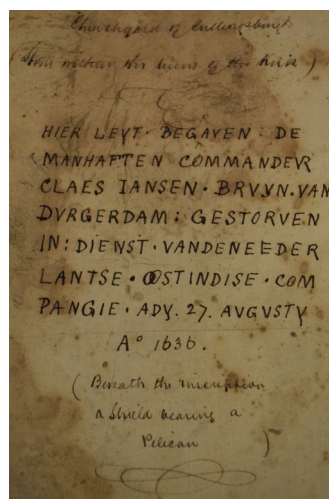 Churchyard of Cullingsburgh
(Thus within the ruins of the Kirk)
HIER LEYT · BEGAVEN : DE
MANHAFTEN COMMANDEVR
CLAES IANSEN · BRVYN · VAN
DVRGERDAM : GESTORVEN
IN : DIENST · VANDENEEDER
LANTSE · OOSTINDISE · COM
PANGIE · ADY. 27. AVGVSTY
Aº 1636.
(Beneath the inscription
a Shield bearing a
Pelican)